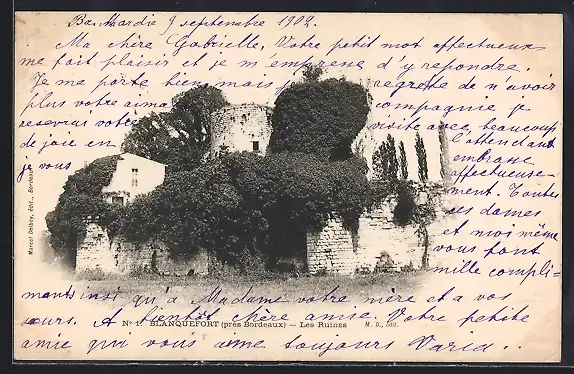 Ba. Mardie 9 septembre 1902.
Ma chère Gabrielle, Votre petit mot affectueux
me fait plaisir et je m'empresse d'y repondre.
Je me porte bien, mais je regrette de n'avoir
plus votre aimable compagnie je
reservrai votre visite avec beaucoup
de joie en l'attendant
je vous embrasse
affectueuse-
ment. Toutes
ces dames
et moi même
vous font
mille compli-
ments ainsi qu'à Madame votre mère et a vos
sœurs. A bientôt chère amie. Votre petite
amie qui vous aime toujours Varia..
Marcel Delboy, édit., Bordeaux
BLANQUEFORT (près Bordeaux) – Les Ruines
M. D., édit.